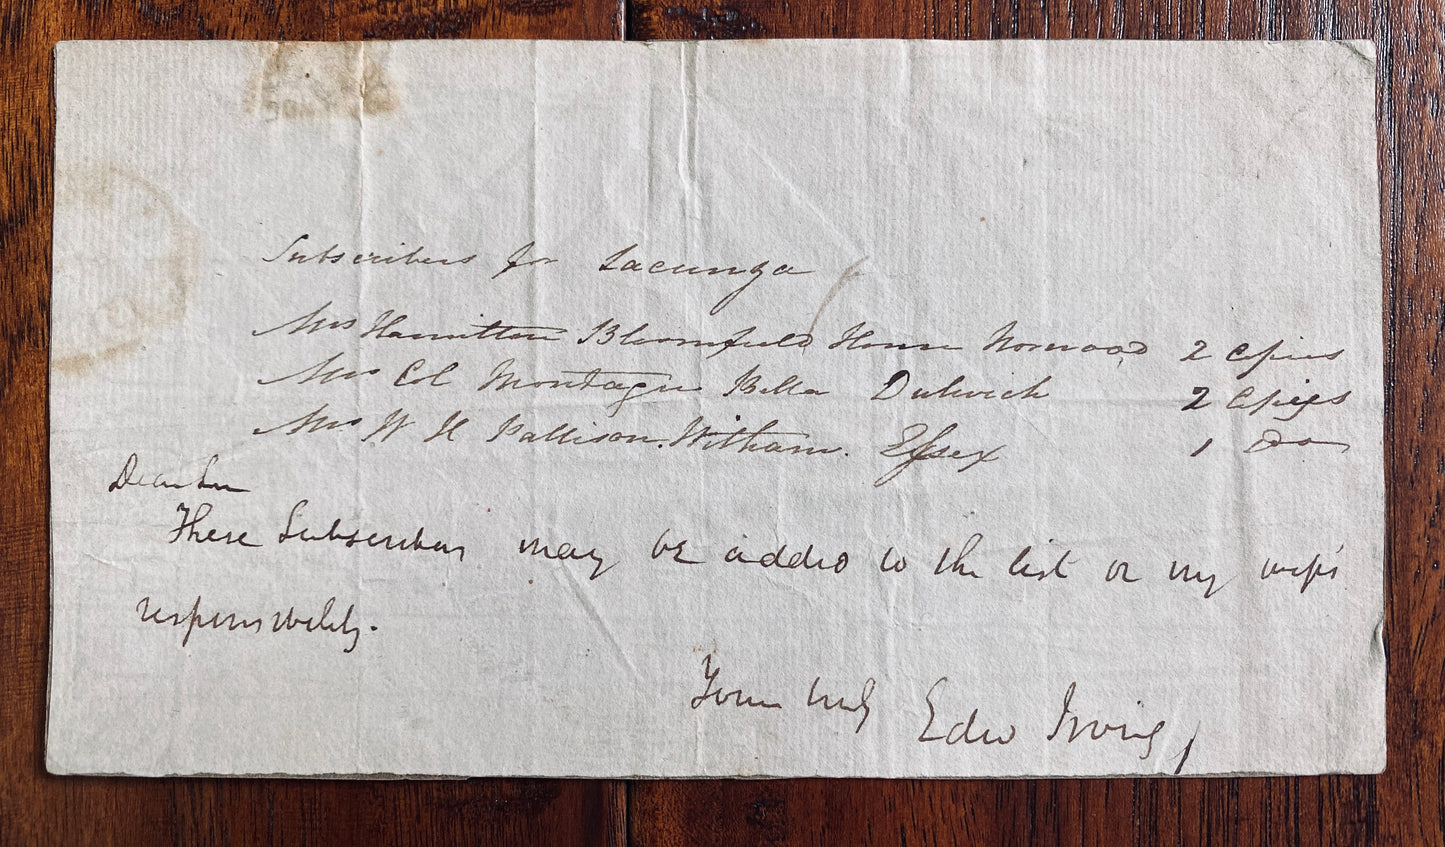 Subscribers for Lacunza
Mrs Hamilton Bloomfield House Norwood 2 Copies
Mrs Col Montague Bella Dulwich 2 Copies
Mrs W H Pattison. Witham. Essex 1 Do
Dear Sir
These Subscribers may be added to the list on my wife's
responsibility.
Yours truly Edwd Irving